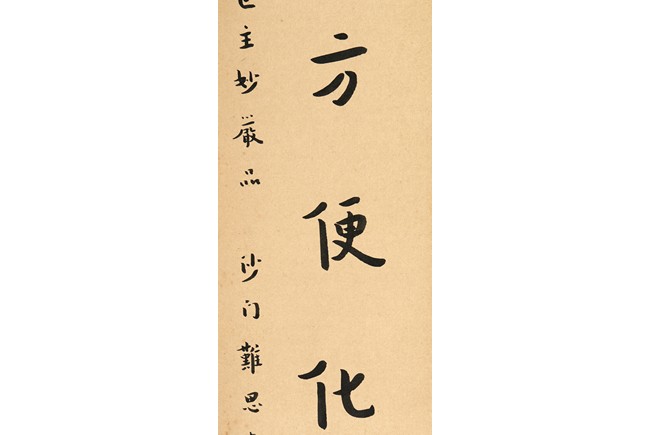 方便化
主妙嚴品 沙门難思